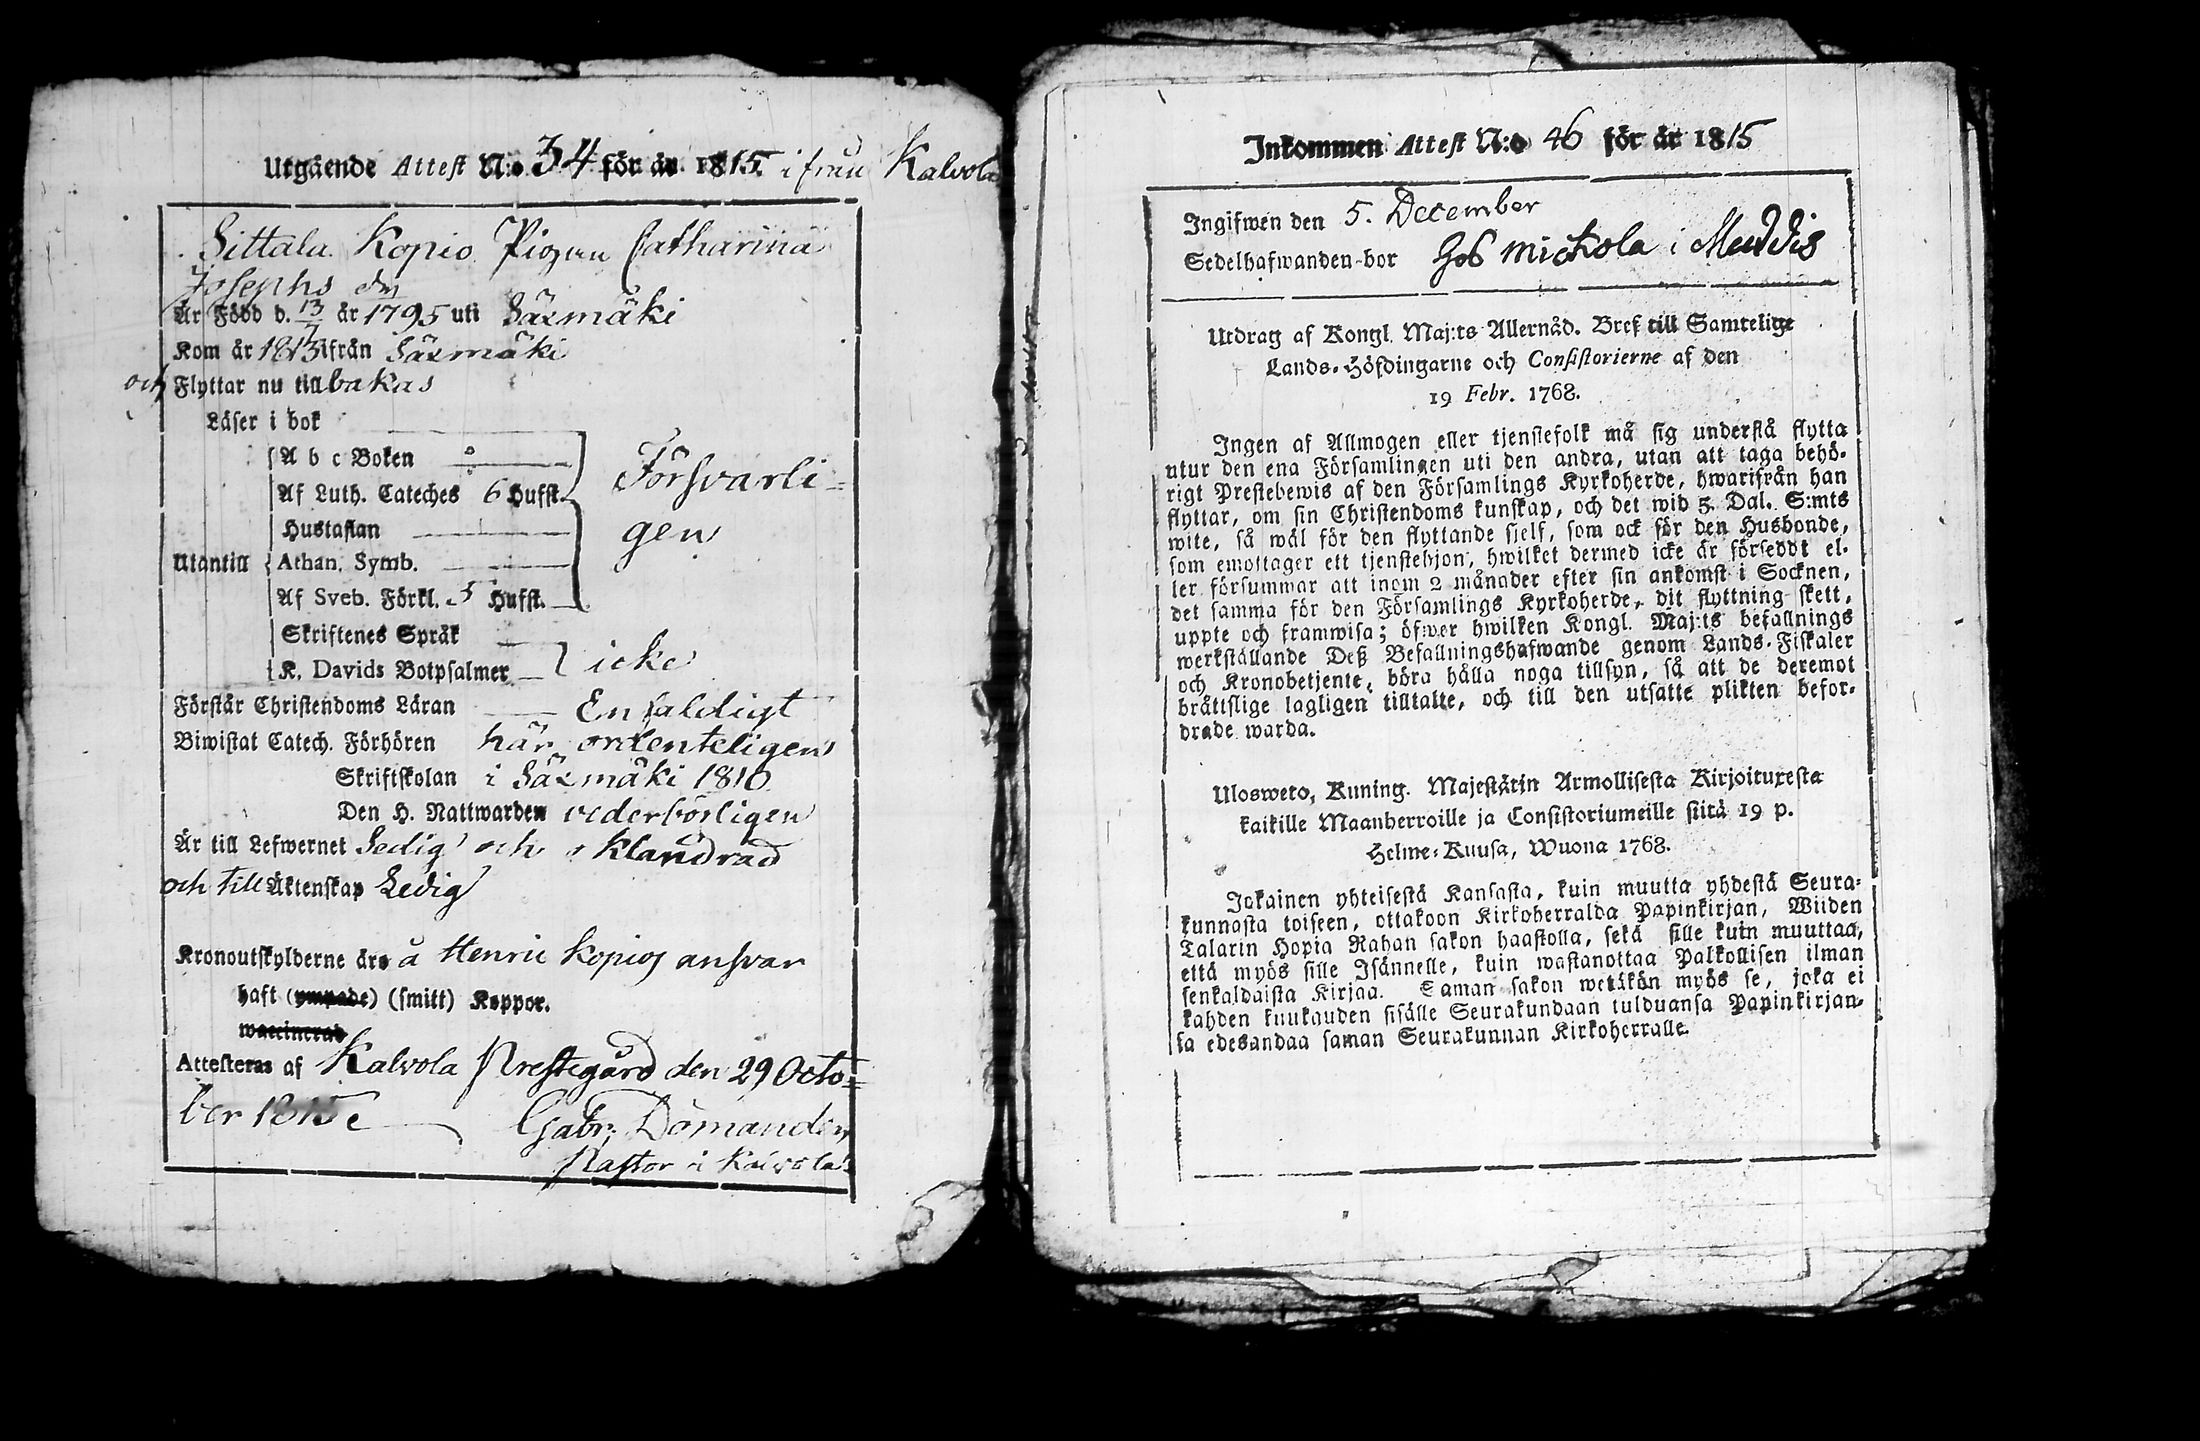 Utgående Attest N:o 34 för år 1815 ifrån Kalvola
Sittala Kopio Pigan Catharina
Josephs dr
Är Född d. 13/7 år 1795 uti Säxmäki
Kom år 1813 ifrån Säxmäki
och Flyttar nu tillbakas
Läser i bok
A b c Boken
Af Luth. Cateches 6 Hufst.
Försvarli=
Hustaflan
gen
Utantill Athan. Symb.
Af Sveb. Förkl. 5 Hufst.
Skriftenes Språk
K. Davids Botpsalmer icke
Förstår Christendoms Läran Enfaldigt
Biwistat Catech. Förhören här ordenteligen
Skriftskolan i Säxmäki 1810
Den H. Nattwarden vederbörligen
Är till Lefwernet Sedig och oklandrad
och till Äktenskap Ledig
Kronoutskylderne äro å Henric Kopios ansvar
haft (ympade) (smitt) Koppor.
waccinerad
Attesteras af Kalvola Prestegård den 29 Octo=
ber 1815
Gabr: Domander
Pastor i Kalvola
Inkommen Attest N:o 46 för år 1815
Ingifwen den 5. December
Sedelhafwanden bor hos Mickola i Muddis
Utdrag af Kongl. Maj:ts Allernåd. Bref till Samtelige
Lands-Höfdingarne och Consistorierne af den
19 Febr. 1768.
Ingen af Allmogen eller tjenstefolk må sig understå flytta
utur den ena Församlingen uti den andra, utan att taga behö-
rigt Prestebewis af den Församlings Kyrkoherde, hwarifrån han
flyttar, om sin Christendoms kunskap, och det wid 5. Dal. S:mts
wite, så wäl för den flyttande sjelf, som ock för den Husbonde,
som emottager ett tjenstehjon, hwilket dermed icke är försedt el-
ler försummar att inom 2 månader efter sin ankomst i Socknen,
det samma för den Församlings Kyrkoherde, dit flyttning skett,
uppte och framwisa; öfwer hwilken Kongl. Maj:ts befallnings
werkställande Deß Befallningshafwande genom Lands-Fiskaler
och Kronobetjente, böra hålla noga tillsyn, så att de deremot
bråttslige lagligen tilltalte, och till den utsatte plikten befor-
drade warda.
Ulosweto, Kuning. Majestätin Armollisesta Kirjoituxesta
kaikille Maanherroille ja Consistoriumeille siitä 19 p.
Helme-Kuusa, Wuona 1768.
Jokainen yhteisestä Kansasta, kuin muutta yhdestä Seura-
kunnasta toiseen, ottakoon Kirkoherralda Papinkirjan, Wiiden
Talarin Hopia Rahan sakon haastolla, sekä sille kuin muuttaa,
että myös sille Isännelle, kuin wastanottaa Palkollisen ilman
senkaldaista Kirjaa. Saman sakon wetäkön myös se, joka ei
kahden kuukauden sisälle Seurakundaan tulduansa Papinkirjan-
sa edesandaa saman Seurakunnan Kirkoherralle.